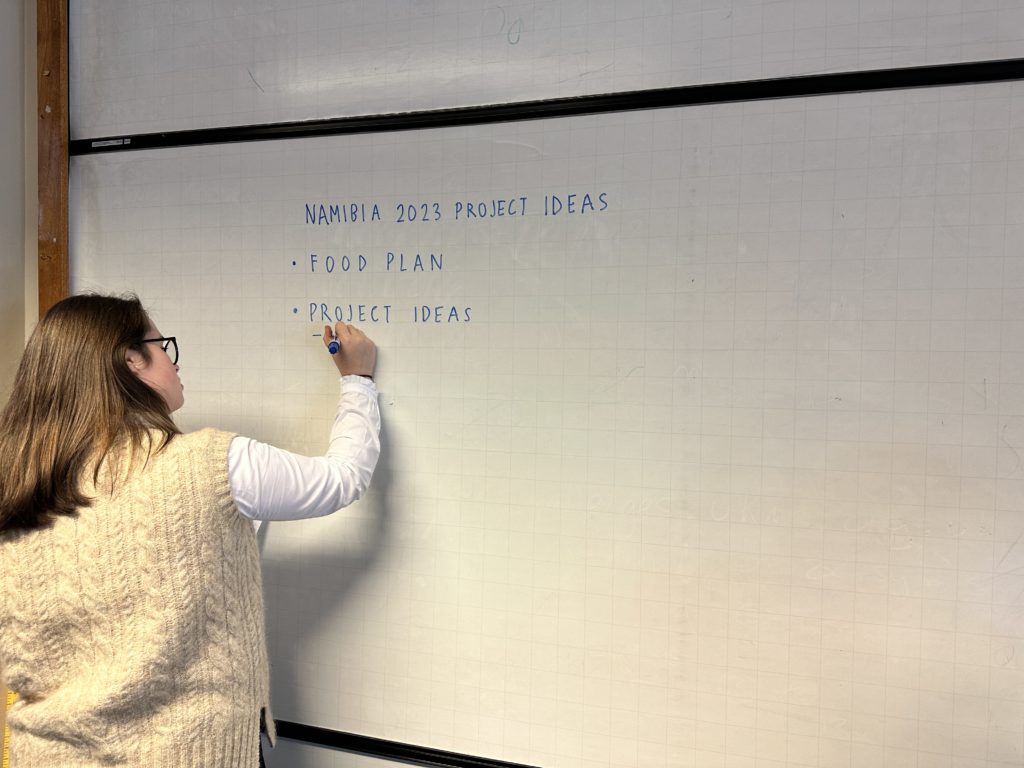 NAMIBIA 2023 PROJECT IDEAS
• FOOD PLAN
• PROJECT IDEAS
-